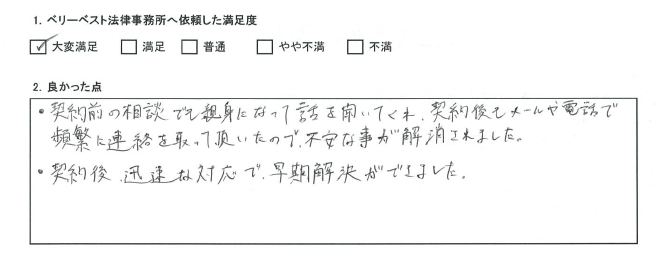 1. ベリーベスト法律事務所へ依頼した満足度
☑ 大変満足 □ 満足 □ 普通 □ やや不満 □ 不満
2. 良かった点
・契約前の相談でも親身になって話を聞いてくれ、契約後もメールや電話で
頻繁に連絡を取って頂いたので、不安な事が解消されました。
・契約後、迅速な対応で、早期解決ができました。